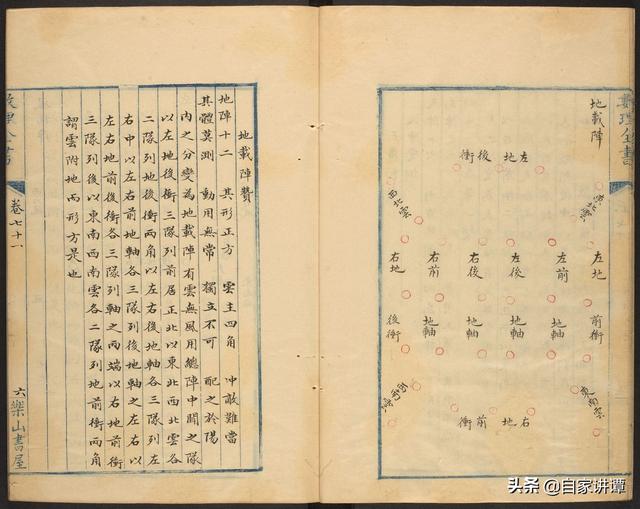 數理全書
地載陣
衝後地左
東北雲
西北雲
左地
左前
左後
右後
右前
右地
前衝
地軸
地軸
地軸
地軸
後衝
東南雲
西南雲
衝前地右
地載陣贊
地陣十二　其形正方　雲主四角　冲敵難當
其體莫測　動用無常　獨立不可　配之於陽
內之分變為地載陣有雲無風用總陣中間之隊
以左地後衝三隊列前居正北以東北西北雲各
二隊列地後衝兩角以左右後地軸各三隊列左
右中以左右前地軸各三隊列後地軸之左右以
左右地前後衝各三隊列軸之兩端以右地前衝
三隊列後以東南西南雲各二隊列地前衝兩角
謂雲附地而形方是也
卷七十一
六樂山書屋
头条 @自家讲谭